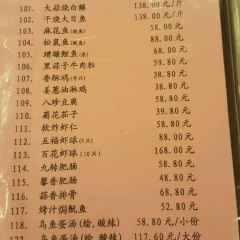 101. 大蒜烧白鳝 138.00元/斤
102. 干烧大目鱼 138.00元/斤
103. 麻花鱼 68.00元
104. 松鼠鱼 88.00元
105. 糟溜鲤鱼 58.00元
106. 黑蒜子牛肉粒 68.00元
107. 香酥鸡(半只) 38.80元
108. 姜葱油淋鸡 58.80元
109. 八珍豆腐 58.80元
110. 菊花茄子 39.80元
111. 软炸虾仁 58.80元
112. 五福虾球 88.00元
113. 百花虾球(10只) 168.00元
114. 九转肥肠 58.80元
115. 馨香肥肠 58.80元
116. 蒜香排骨 68.80元
117. 烤汁焗鱿鱼 52.80元
118. 乌鱼蛋汤(烩,酸辣) 58.80元/小份
122. 乌鱼蛋汤(烩,酸辣) 117.60元/大份